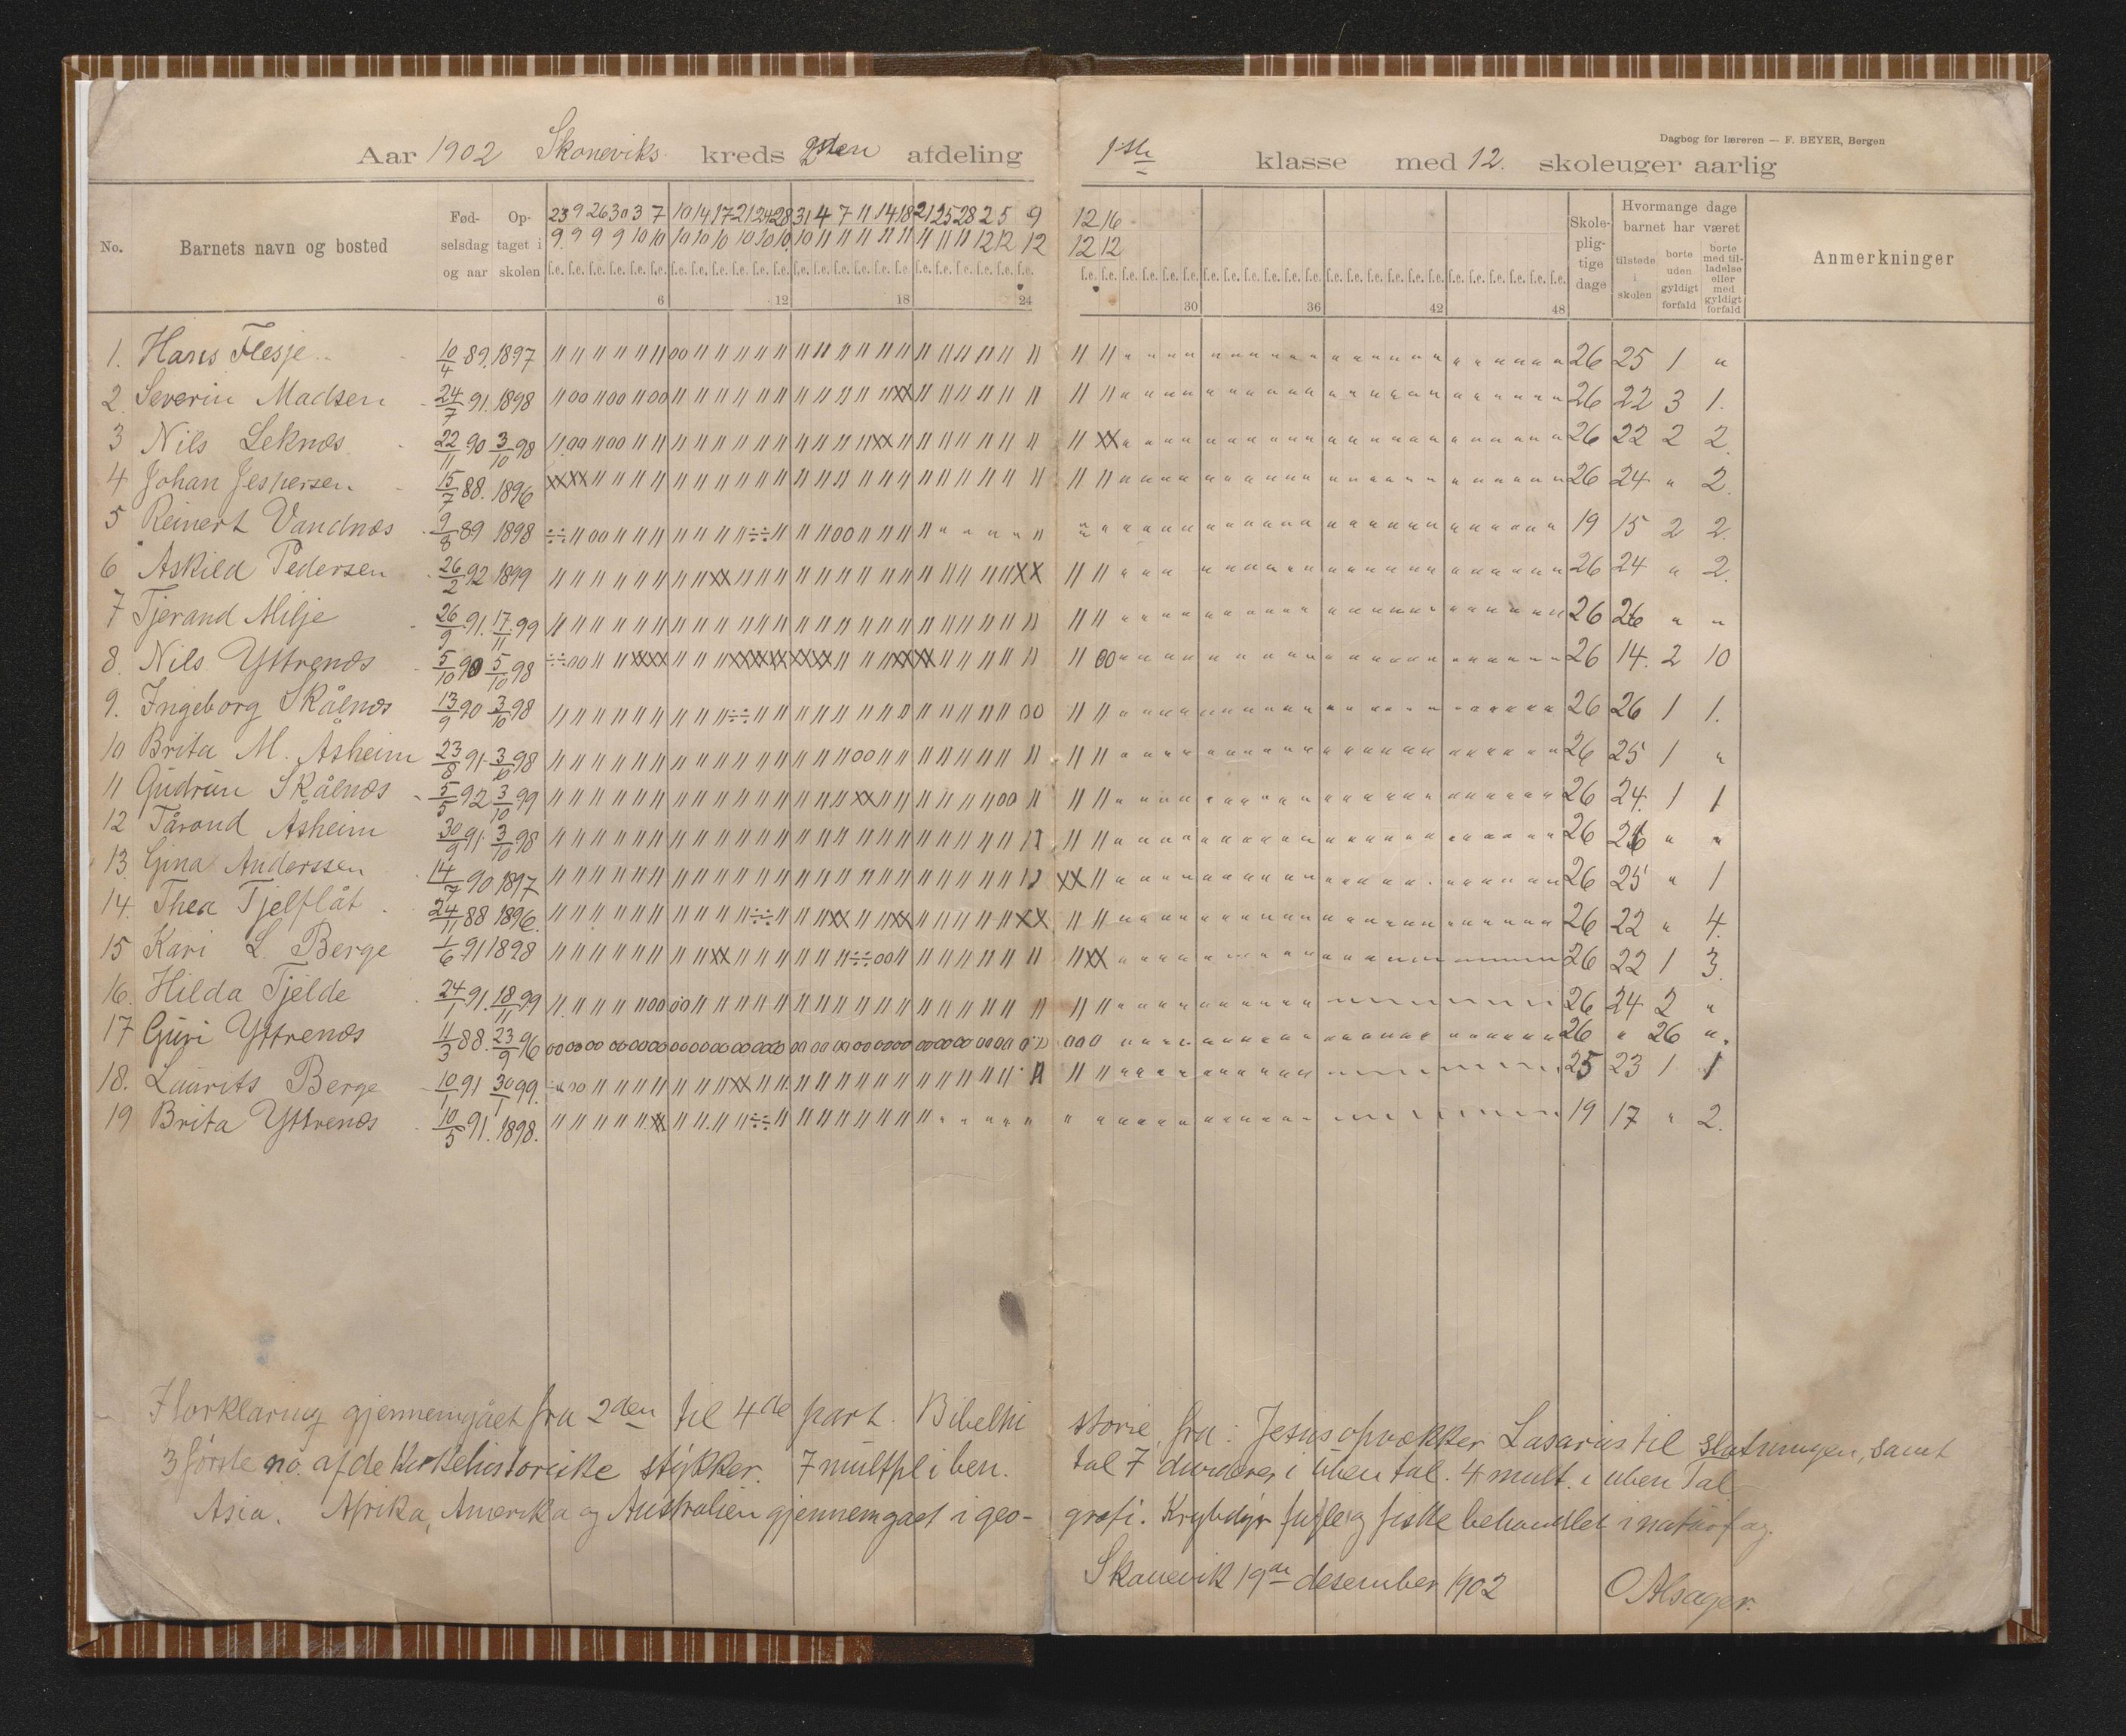 Dagbog for læreren — F. BEYER, Bergen
Aar 1902 Skoneviks kreds 2den afdeling 1ste klasse med 12. skoleuger aarlig
No. Barnets navn og bosted Fødselsdag og aar Optaget i skolen Skolepligtige dage Hvormange dage barnet har været tilstede i skolen borte uden gyldigt forfald borte med tilladelse eller med gyldigt forfald Anmerkninger
23 9 26 30 3 7 10 14 17 21 24 28 31 4 7 11 14 18 21 25 28 2 5 9 12 16
9 9 9 9 10 10 10 10 10 10 10 10 10 11 11 11 11 11 11 11 11 12 12 12 12 12
6 12 18 24 30 36 42 48
1. Hans Flesje 10/4 89. 1897 26 25 1 "
2. Severin Madsen 24/7 91. 1898 26 22 3 1.
3 Nils Leknæs 22/11 90 3/10 98 26 22 2 2.
4 Johan Jespersen 15/7 88. 1896 26 24 " 2.
5 Reinert Vandnæs 9/8 89 1898 19 15 2 2.
6 Askild Pedersen 26/2 92 1899 26 24 " 2.
7 Tjerand Milje 26/9 91. 17/11 99 26 26 " "
8. Nils Yttrenæs 5/10 90 5/10 98 26 14. 2 10
9. Ingeborg Skålnæs 13/9 90 3/10 98 26 26 1 1.
10 Brita M. Åsheim 23/8 91. 3/10 98 26 25 1 "
11 Gudrun Skålnæs 5/5 92 3/10 99 26 24. 1 1
12 Tårond Åsheim 30/9 91. 3/10 98 26 26 " "
13. Gina Anderssen 14/7 90 1897 26 25 " 1
14. Thea Tjelflåt 24/11 88 1896. 26 22 " 4.
15 Kari L. Berge 1/6 91 1898 26 22 1 3.
16. Hilda Tjelde 24/1 91. 18/11 99 26 24 2 "
17 Guri Yttrenæs 11/3 88. 23/9 96 26 " 26 ".
18. Laurits Berge 10/1 91 30/1 99. 25 23 1 1
19 Brita Yttrenæs 10/5 91. 1898. 19 17 " 2.
I forklaring gjennemgået fra 2den til 4de part. Bibelhistorie, fra: Jesus opvækker Lasarus til slutningen, samt
3 første no. af de kirkehistoriske stykker. 7 multpl i ben. tal 7 divideres i uben tal. 4 mult. i uben Tal
Asia. Afrika, Amerika og Australien gjennemgaet i geografi. Krybdyr fugle og fiske behandlet i naturfag.
Skonevik 19de desember 1902 O Alsager.